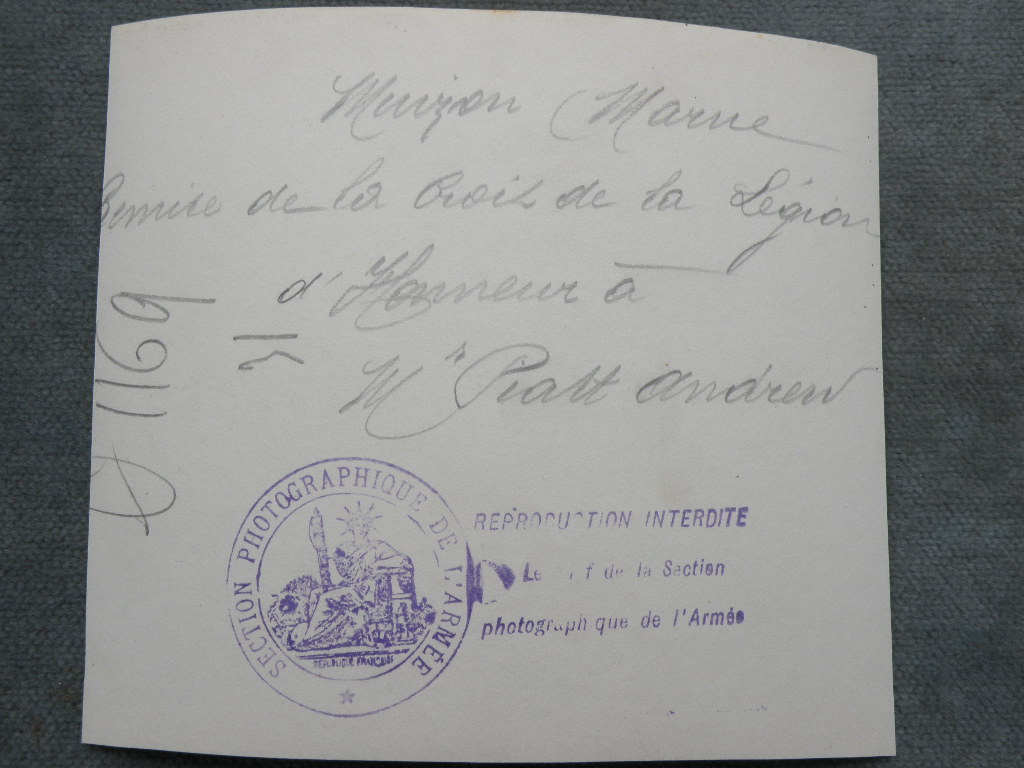 Muizon Marne
Remise de la Croix de la Légion
d'Honneur à
Mr Piatt Andrew
1169
SECTION PHOTOGRAPHIQUE DE L'ARMÉE
RÉPUBLIQUE FRANÇAISE
REPRODUCTION INTERDITE
Le f de la Section
photographique de l'Armée